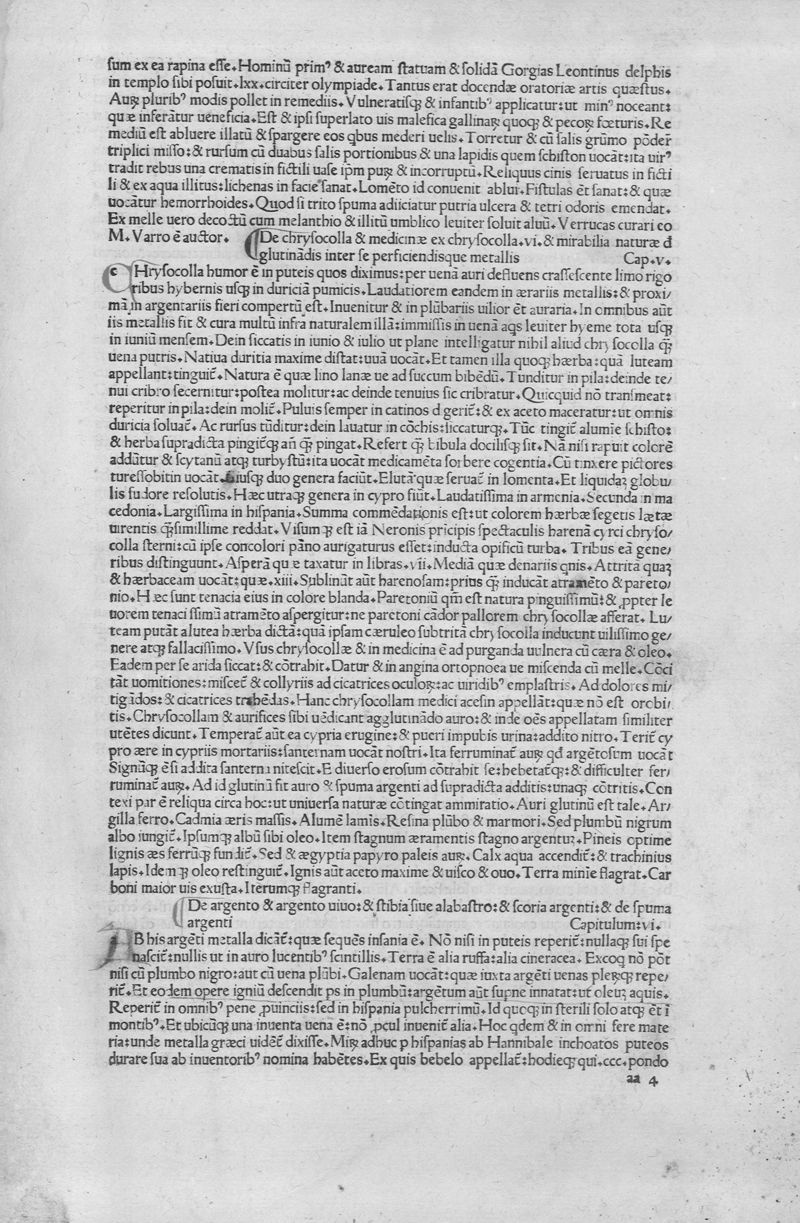 sum ex ea rapina esse. Hominũ primꝰ & auream statuam & solidã Gorgias Leontinus delphis
in templo sibi posuit. lxx. circiter olympiade. Tantus erat docendæ oratoriæ artis quæstus.
Auꝝ pluribꝰ modis pollet in remediis. Vulneratisqꝫ & infantibꝰ applicatur: ut minꝰ noceant:
quæ inferãtur ueneficia. Est & ipsi superlato uis malefica gallinaꝝ quoqꝫ & pecoꝝ fœturis. Re
mediũ est abluere illatũ & spargere eos qbus mederi uelis. Torretur & cũ salis grũmo põder
triplici misso: & rursum cũ duabus salis portionibus & una lapidis quem schiston uocãt: ita uirꝰ
tradit rebus una crematis in fictili uase ipm puꝝ & incorruptũ. Reliquus cinis seruatus in ficti
li & ex aqua illitus: lichenas in facie sanat. Lomẽto id conuenit ablui. Fistulas ẽt sanat: & quæ
uocãtur hemorrhoides. Quod si trito spuma adiiciatur putria ulcera & tetri odoris emendat.
Ex melle uero decoctũ cum melanthio & illitũ umblico leuiter soluit aluũ. Verrucas curari eo
M. Varro ẽ auctor. De chrysocolla & medicinæ ex chrysocolla. vi. & mirabilia naturæ d
glutinãdis inter se perficiendisque metallis Cap. v.
cHRysocolla humor ẽ in puteis quos diximus: per uenã auri defluens crassescente limo rigo
ribus hybernis usqꝫ in duriciã pumicis. Laudatiorem eandem in ærariis metallis: & proxi
mã in argentariis fieri compertũ est. Inuenitur & in plũbariis uilior ẽt auraria. In omnibus aũt
iis metallis fit & cura multũ infra naturalem illã: immissis in uenã aqs leuiter hyeme tota usqꝫ
in iuniũ mensem. Dein siccatis in iunio & iulio ut plane intelligatur nihil aliud chrysocolla qꝫ̃
uena putris. Natiua duritia maxime distat: uuã uocãt. Et tamen illa quoqꝫ hærba: quã luteam
appellant: tinguit̃. Natura ẽ quæ lino lanæ ue ad succum bibẽdũ. Tunditur in pila: deinde te/
nui cribro secernitur: postea molitur: ac deinde tenuius sic cribratur. Quicquid nõ transmeat:
reperitur in pila: dein molit̃. Puluis semper in catinos d gerit̃: & ex aceto maceratur: ut omnis
duricia soluat̃. Ac rursus tũditur: dein lauatur in cõchis: siccaturqꝫ. Tũc tingit̃ alumĩe schisto:
& herba supradicta pingit̃qꝫ añ qꝫ̃ pingat. Refert qꝫ̃ bibula docilisqꝫ sit. Nã nisi rapuit colorẽ
addũtur & scytanũ atqꝫ turbystũ: ita uocãt medicamẽta sorbere cogentia. Cũ tinxere pictores
turessobitin uocãt. Eiusqꝫ duo genera faciũt. Elutã quæ seruat̃ in lomenta. Et liquidaꝫ globu/
lis sudore resolutis. Hæc utraqꝫ genera in cypro fiũt. Laudatissima in armenia. Secunda in ma
cedonia. Largissima in hispania. Summa commẽdationis est: ut colorem hærbæ segetis lætæ
uirentis qꝫ̃ simillime reddat. Visumqꝫ est iã Neronis pricipis spectaculis harenã cyrci chryso/
colla sterni: cũ ipse concolori pãno aurigaturus esset: inducta opificũ turba. Tribus eã gene/
ribus distinguunt. Asperã quæ taxatur in libras. vii. Mediã quæ denariis qnis. Attritã quaꝫ
& hærbaceam uocãt: quæ. xiii. Sublinãt aũt harenosam: prius qꝫ̃ inducãt atramẽto & pareto/
nio. Hæc sunt tenacia eius in colore blanda. Paretoniũ qm̃ est natura pinguissimũ: & ꝓpter le
uorem tenacissimũ atramẽto aspergitur: ne paretoni cãdor pallorem chrysocollæ afferat. Lu/
team putãt a lutea hærba dictã: quã ipsam cæruleo subtritã chrysocolla inducunt uilissimo ge/
nere atqꝫ fallacissimo. Vsus chrysocollæ & in medicina ẽ ad purganda uulnera cũ cæra & oleo.
Eadem per se arida siccat: & cõtrahit. Datur & in angina ortopnoea ue miscenda cũ melle. Cõci
tãt uomitiones: miscet̃ & collyriis ad cicatrices oculoꝝ: ac uiridibꝰ emplastris. Ad dolores mi/
tigãdos: & cicatrices trahẽdas. Hanc chrysocollam medici acesin appellãt: quæ nõ est orobi/
tis. Chrysocollam & aurifices sibi uẽdicant agglutinãdo auro: & inde oẽs appellatam similiter
utẽtes dicunt. Temperat̃ aũt ea cypria erugine: & pueri impubis urina: addito nitro. Terit̃ cy
pro ære in cypriis mortariis: santernam uocãt nostri. Ita ferruminat̃ auꝝ qd argẽtosum uocãt
Signũqꝫ ẽ si addita santerna nitescit. E diuerso erosum cõtrahit se: hebetat̃qꝫ: & difficulter fer/
ruminat̃ auꝝ. Ad id glutinũ fit auro & spuma argenti ad supradicta additis: unaqꝫ cõtritis. Con
texi par ẽ reliqua circa hoc: ut uniuersa naturæ cõtingat ammiratio. Auri glutinũ est tale. Ar/
gilla ferro. Cadmia æris massis. Alumẽ lamĩs. Resina plũbo & marmori. Sed plumbũ nigrum
albo iungit̃. Ipsumqꝫ albũ sibi oleo. Item stagnum æramentis stagno argentuꝫ. Pineis optime
lignis æs ferrũqꝫ fundit̃. Sed & ægyptia papyro paleis auꝝ. Calx aqua accendit̃: & trachinius
lapis. Idemqꝫ oleo restinguit̃. Ignis aũt aceto maxime & uisco & ouo. Terra minĩe flagrat. Car
boni maior uis exusta. Iterumqꝫ flagranti.
De argento & argento uiuo: & stibia siue alabastro: & scoria argenti: & de spuma
argenti Capitulum: vi.
AB his argẽti metalla dicãt̃: quæ sequẽs insania ẽ. Nõ nisi in puteis reperit̃: nullaqꝫ sui spe
nascit̃: nullis ut in auro lucentibꝰ scintillis. Terra ẽ alia ruffa: alia cineracea. Excoq nõ põt
nisi cũ plumbo nigro: aut cũ uena plũbi. Galenam uocãt: quæ iuxta argẽti uenas pleꝝqꝫ repe/
rit̃. Et eodem opere igniũ descendit ps in plumbũ: argẽtum aũt supne innatat: ut oleuꝫ aquis.
Reperit̃ in omnibꝰ pene ꝓuinciis: sed in hispania pulcherrimũ. Id quoqꝫ in sterili solo atqꝫ ẽt ĩ
montibꝰ. Et ubicũqꝫ una inuenta uena ẽ: nõ ꝓcul inuenit̃ alia. Hoc qdem & in omni fere mate
ria: unde metalla græci uidẽt̃ dixisse. Miꝝ adhuc p hispanias ab Hannibale inchoatos puteos
durare sua ab inuentoribꝰ nomina habẽtes. Ex quis bebelo appellat̃: hodieqꝫ qui. ccc. pondo
aa 4